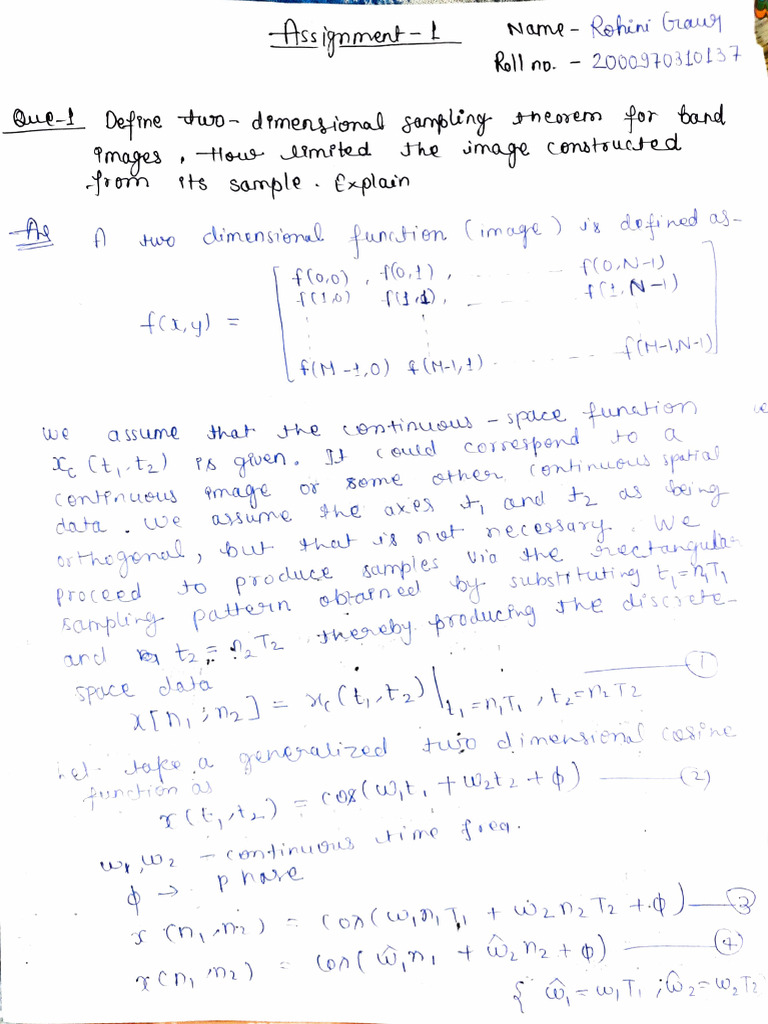 Assignment-1
Name- Rohini Graur
Roll no. - 2000970310137
Que-1 Define two-dimensional sampling theorem for band
images, How limited the image constructed
from its sample. Explain
As A two dimensional function (image) is defined as-
f(x,y) = [ f(0,0), f(0,1), ...... f(0,N-1)
f(1,0) f(1,1), ...... f(1,N-1)
f(M-1,0) f(M-1,1) ...... f(M-1,N-1) ]
we assume that the continuous-space function
x_c(t₁,t₂) is given. It could correspond to a
continuous image or some other continuous spatial
data. We assume the axes t₁ and t₂ as being
orthogonal, but that is not necessary. We
proceed to produce samples via the rectangular
sampling pattern obtained by substituting t₁=n₁T₁
and t₂ = n₂T₂ thereby producing the discrete-
space data
x[n₁,n₂] = x_c(t₁,t₂)|t₁=n₁T₁, t₂=n₂T₂ ——①
let take a generalized two dimensional cosine
function as
x(t₁,t₂) = cos(ω₁t₁ + ω₂t₂ + ϕ) ——(2)
ω₁,ω₂ - continuous time freq.
ϕ → phase
x(n₁,n₂) = cos(ω₁n₁T₁ + ω₂n₂T₂ + ϕ) ——③
x(n₁,n₂) = cos(ω̂₁n₁ + ω̂₂n₂ + ϕ) ——④
{∵ ω̂₁=ω₁T₁ ; ω̂₂=ω₂T₂